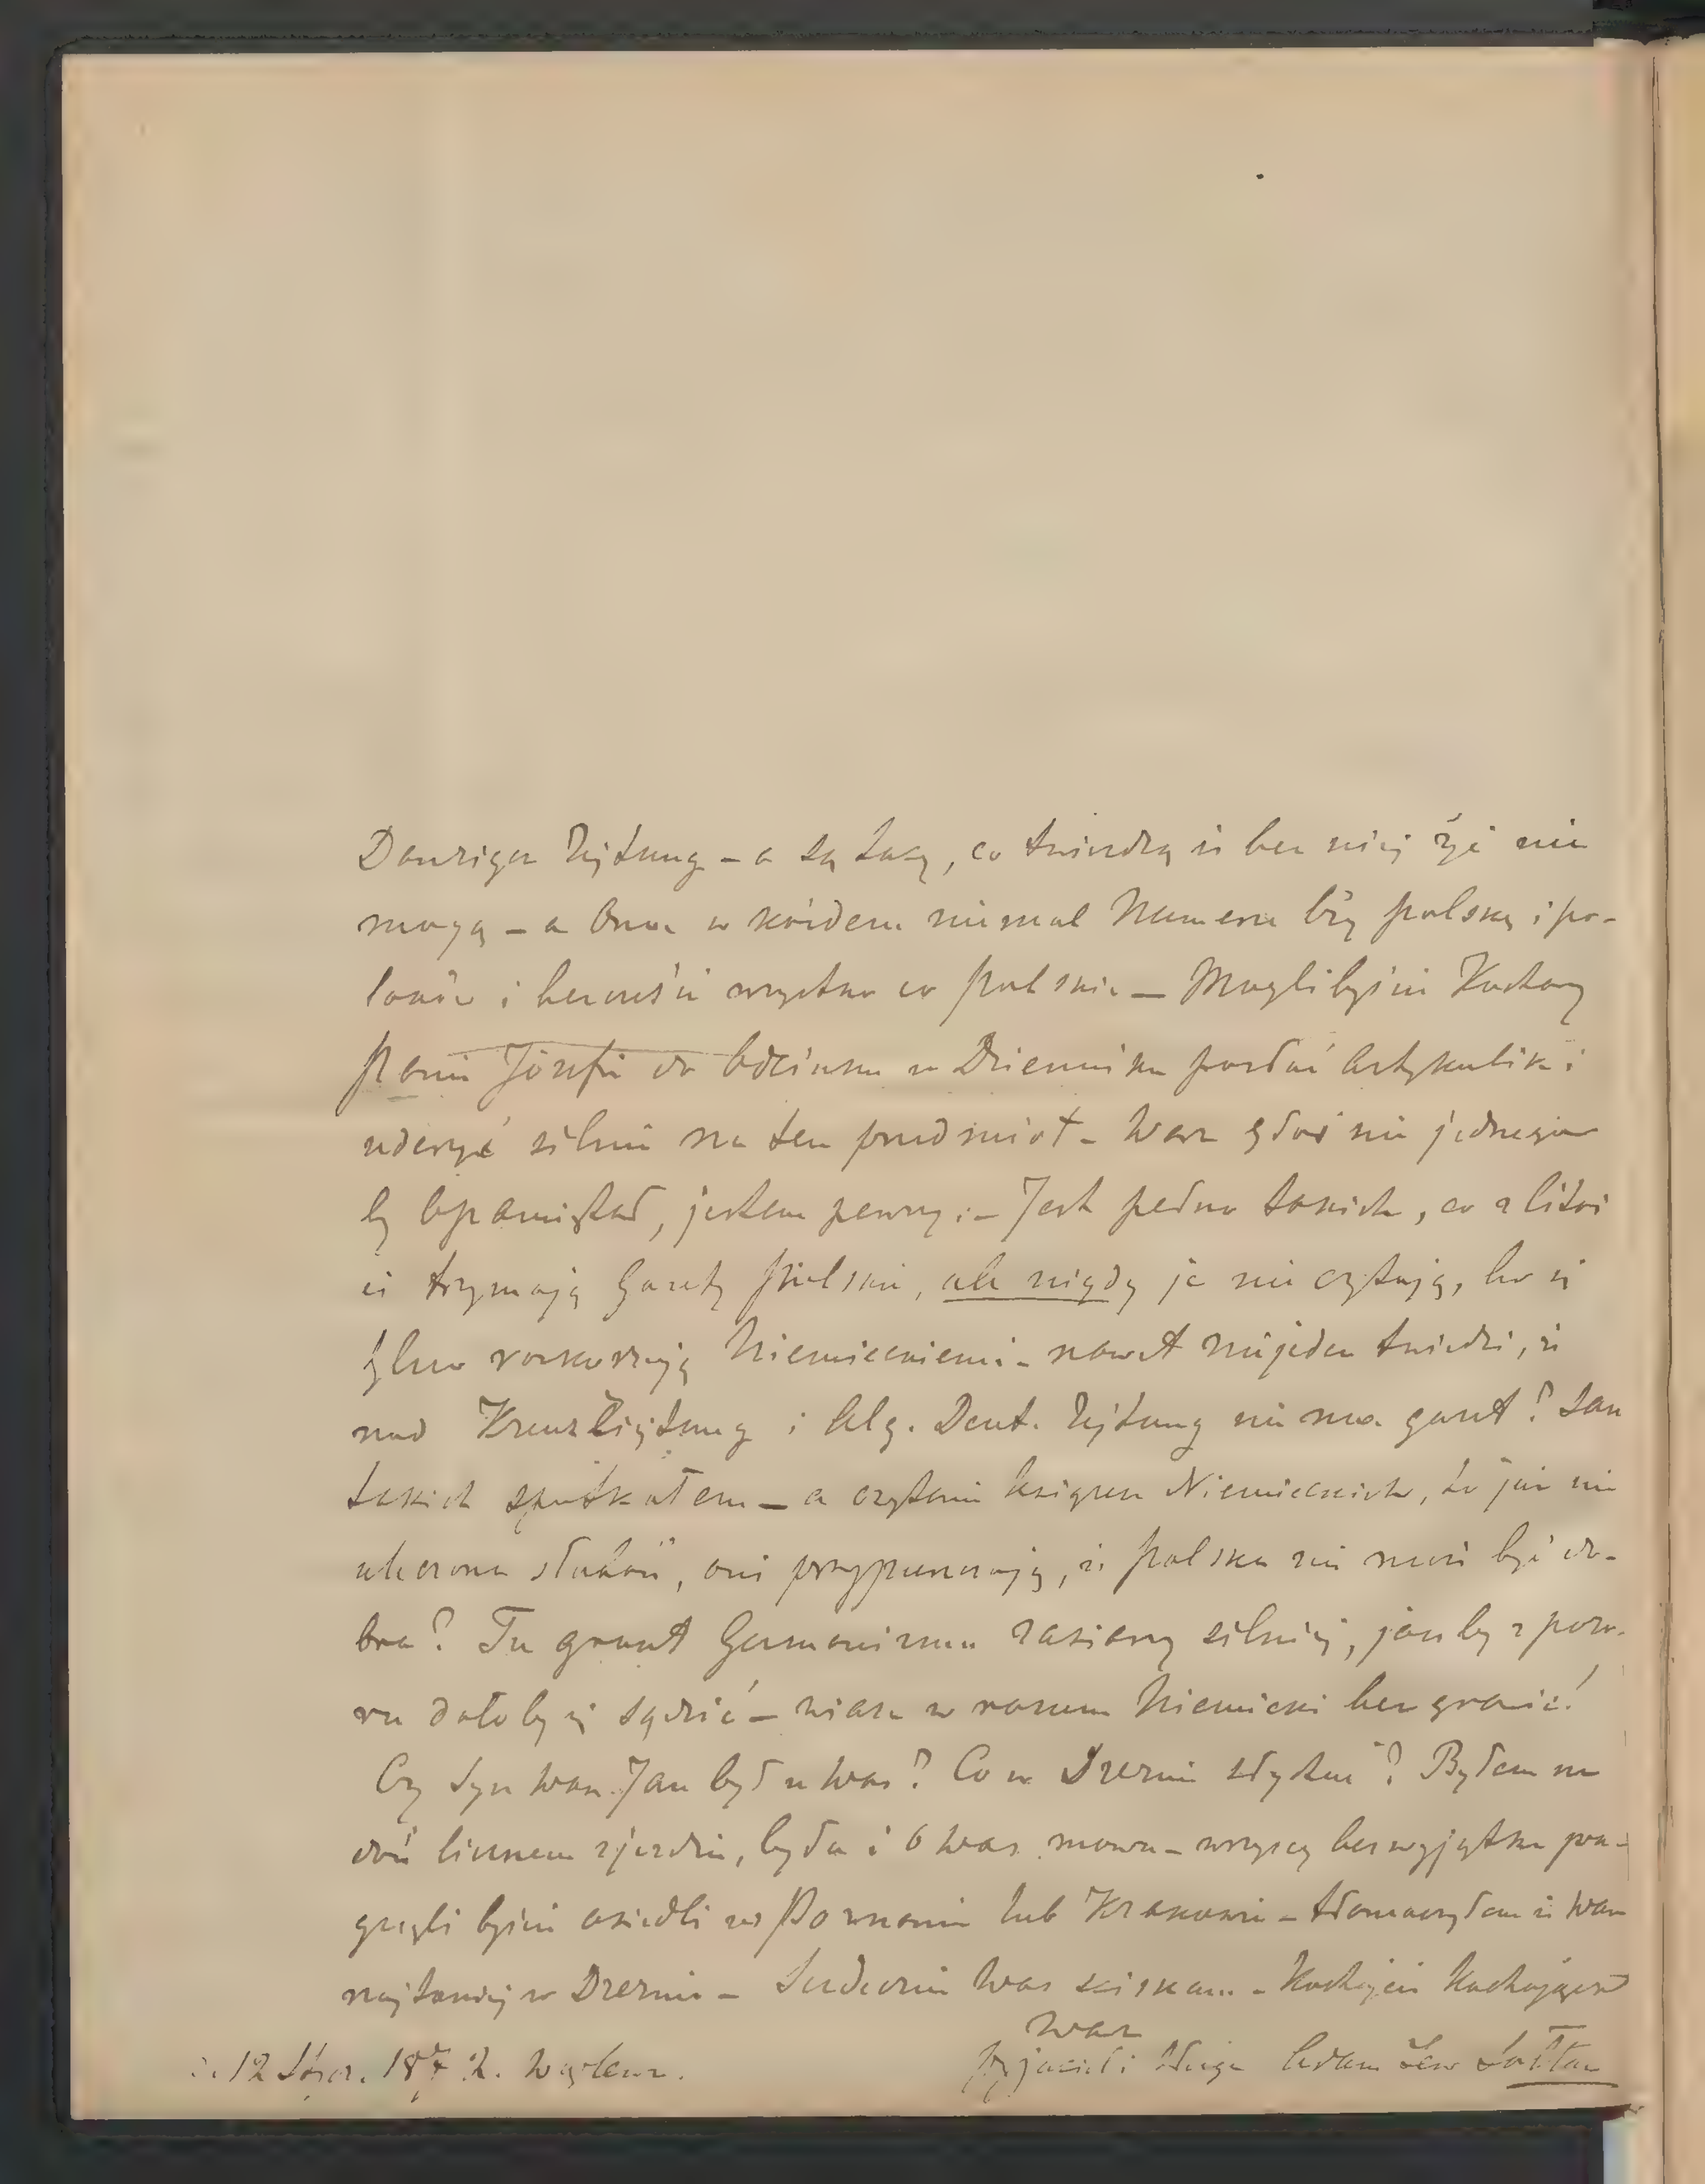 Danziger Zejtung – a są tacy, co twierdzą iż bez niej żyć nie
mogą – a Ona w każdem niemal Numerze lży polskę i po-
laków i bezcześci wszystko co polskie – Moglibyście Kochany
Panie Józefie do Odcinku w Dzienniku posłać Artykulik i
uderzyć silnie na ten przedmiot – Wasz głos nie jednego
by Opamiętał, jestem pewny. – Jest pełno takich, co z litoś
ci trzymają Gazety polskie, ale nigdy je nie czytają, bo się
tylko rozkoszują Niemieckiemi – nawet niejeden twierdzi, iż
nad Kreuz Zejtung i Alg. Deut. Zejtung nie ma gazet? Sam
takich spotkałem – a czytanie książek Niemieckich, to już nie
oni przypuszczają, iż polska nie może być do-
bra? Tu grunt Germanizmu zasiany silniej, jakby z pozo-
ru dałoby się sądzić – wiara w rozum Niemiecki bez granic!
Czy Syn Wasz Jan był u Was? Co w Dreznie słychać? Byłem na
dość licznem zjeździe, była i o Was mowa – wszyscy bez wyjątku pra-
gnęli byście osiedli w Poznaniu lub Krakowie – tłomaczyłem iż Wam
najtaniej w Dreznie – Serdecznie Was ściskam – Kochajcie Kochającego
Was
d. 12 Stycz. 1872.
przyjaciel i Sługa Adam Lew Sołtan